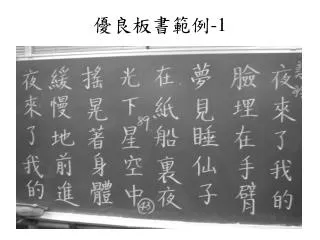 優良板書範例-1
夜來了我的
臉埋在手臂
夢見睡仙子
在紙船裏夜
89
光下星空中
43
搖晃著身體
緩慢地前進
夜來了我的